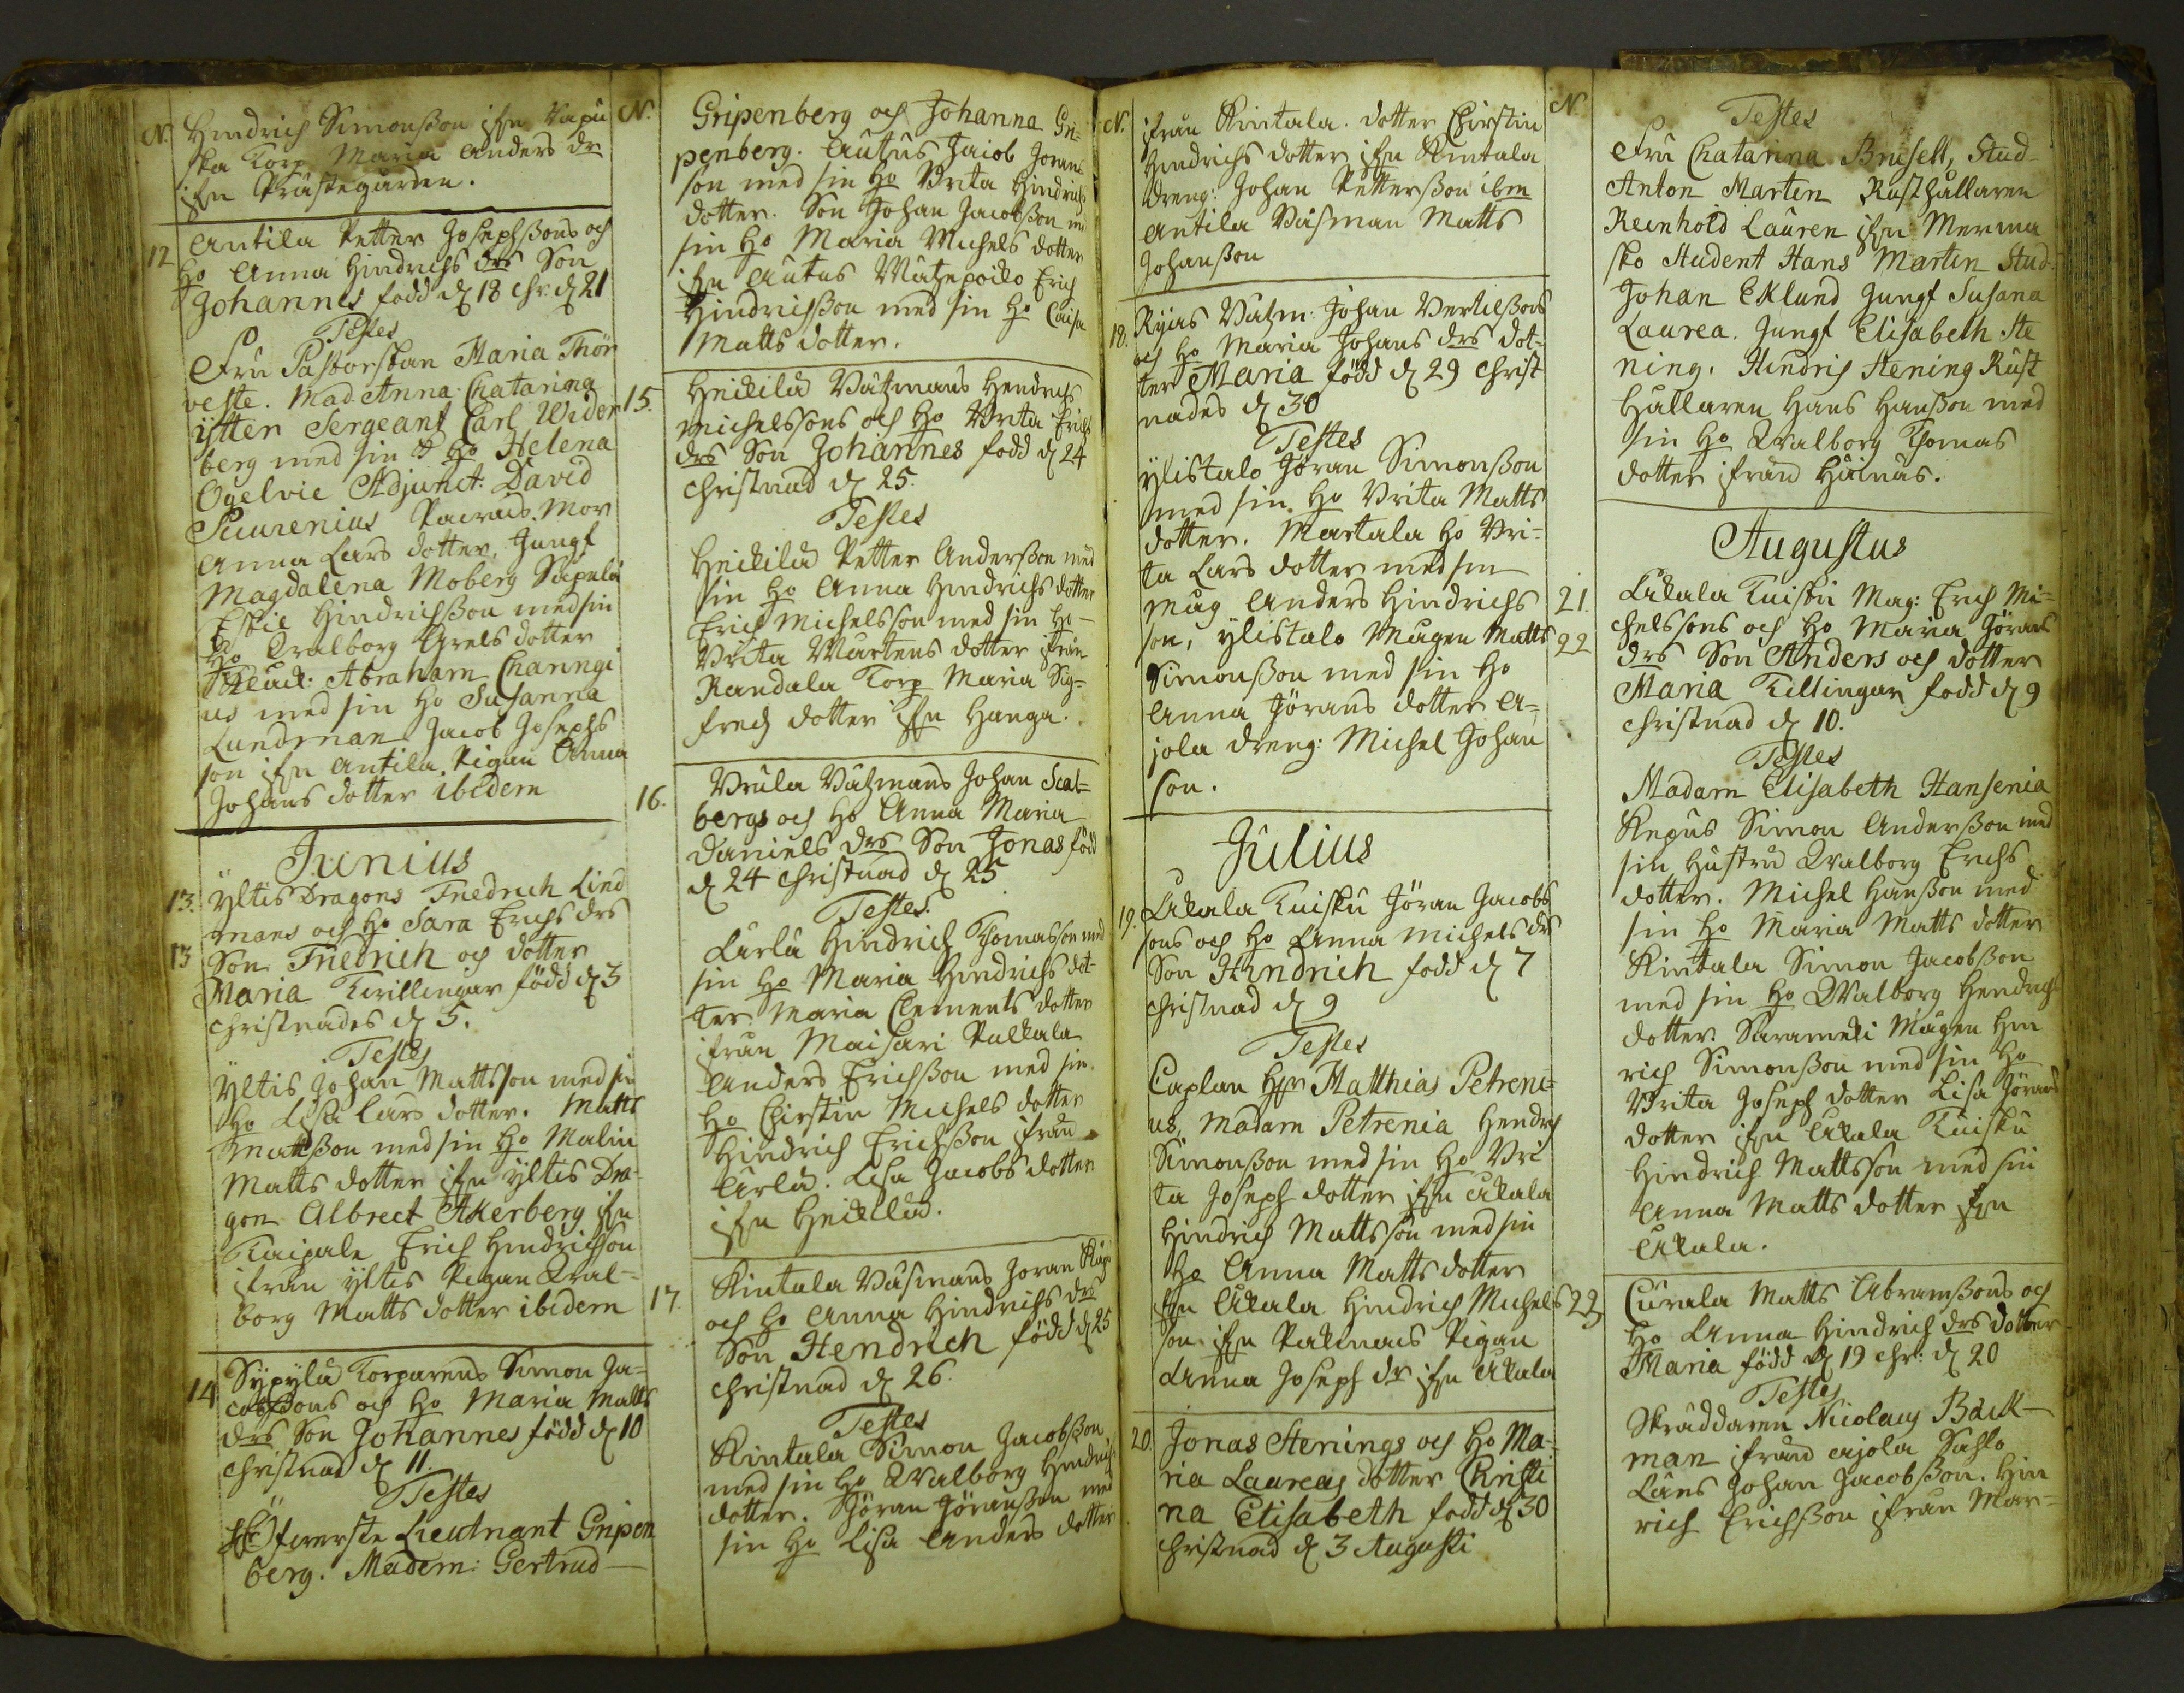 N. Hindrich Simonsson ifrn Vapu
ska Torp Maria Anders dr
ifrn Prästegården.
12 Antila Petter Josephssons och
Ho Anna Hindrichs drs Son
Johannes född d 18 chr. d 21
Testes
Fru Pastorskan Maria Thor
veste. Mad. Anna Chatarina
ytter Sergeant Carl Wider
berg med sin Ho Helena
Ogelvie Adjunct. David
Mor
Anna Lars dotter, Jungf
Magdalena Moberg Säpilä
Eskil Hindrichsson med sin
Ho Walborg Grels dotter
Abraham Charingi
us med sin Ho Susanna
Lundman Jacob Josephs
son ifrn Antila. Pigan Anna
Johans dotter ibidem
Junius
13. Yltis Dragons Friedrich Lind
mans och Ho Sara Erichs drs
13 Son Friedrich och dotter
Maria Tvillingar född d 3
christnades d 5.
Testes
Yltis Johan Mattsson med sin
Ho Lisa Lars dotter. Matts
Mattsson med sin Ho Malin
Matts dotter ifrn Yltis Dra-
gon Albrect Åkerberg ifrn
Kaipala Erich Hindrichson
ifrån Yltis Pigan Wal-
borg Matts dotter ibidem
14 Sypylä Torparens Simon Ja-
cobssons och Ho Maria Matts
drs Son Johannes född d 10
christnad d 11.
Testes
Öfwerste Lieutnant Gripen
berg. Madem: Gertrud
N.
Gripenberg och Johanna Gri-
penberg. Autus Jacob Jorans
son med sin Ho Brita Hindrichs
dotter. Son Johan Jacobsson med
sin Ho Maria Michels dotter
ifrn Autus Erich
Hindrichsson med sin Ho Caisa
Matts dotter.
15. Heickilä Vatzmans Hendrichs
Michelssons och Ho Brita Erichs
drs Son Johannes född d 24
christnad d 25.
Testes
Heickilä Petter Andersson med
sin Ho Anna Hendrichs dotter
Erich Michelsson med sin Ho
Brita Martens dotter ifrån
Randala Torp Maria Sig-
freds dotter ifrn Hanga.
16. Urula Vatzmans Johan Scat-
bergs och Ho Anna Maria
Daniels drs Son Jonas född
d 24 christnad d 25
Testes.
Lurla Hindrich Thomasson med
sin Ho Maria Hindrichs dot-
ter Maria Clements dotter
ifrån Maisari Pukkala
Anders Erichsson med sin
Ho Chirstin Michels dotter
Hindrich Erichsson ifrån
Urla. Lisa Jacobs dotter
ifrn Heickilä.
17. Rintala Vasmans Joran
och Ho Anna Hindrichs drs
Son Hendrich född d 25
christnad d 26.
Testes
Rintala Simon Jacobsson
med sin Ho Walborg Hendrichs
dotter. Jöran Göransson med
sin Ho Lisa Anders dotter
N. ifrån Rintala. dotter Chirstin
Hindrichs dotter ifrn Rintala
dreng: Johan Pettersson ibm
Antila Vasman Matts
Johansson
18. Rijas Vatzm: Johan Bertilssons
och Ho Maria Johans drs dot-
ter Maria född d 29 christ
nades d 30
Testes
Ylistalo Jöran Simonsson
med sin Ho Brita Matts
dotter. Martala Ho Bri-
ta Lars dotter med sin
måg Anders Hindrichs
son, Ylistalo Mågen Matts
Simonsson med sin Ho
Anna Jörans dotter A-
jola dreng: Michel Johan
son.
Julius
19. Uckala Knisku Jöran Jacobs
sons och Ho Anna Michels drs
Son Hindrich född d 7
christnad d 9
Testes
Caplan Hr Matthias Petreni-
us, Madam Petrenia Hendrich
Simonsson med sin Ho Bri
ta Joseph dotter ifrn Uckala
Hindrich Mattsson med sin
Ho Anna Matts dotter
ifrn Uckala Hindrich Michels
son ifrn Pigan
Anna Joseph dr ifrn Uckala
20. Jonas Stenings och Ho Ma-
ria Laureas dotter Christi
na Elisabeth född d 30
christnad d 3 Augusti
N.
Testes
Fru Chatarina Brusell, Stud-
Anton Martin Rusthållaren
Reinhold Lauren ifrn Merma
sko Student Hans Martin Stud-
Johan Eklund Jungf Susana
Laurea. Jungf Elisabeth Ste
ning. Hindrich Stening Rust
hållaren Hans Hansson med
sin Ho Walborg Thomas
dotter ifrån Huinas.
Augustus
21. Uckala Knisku Mag: Erich Mi-
chelssons och Ho Maria Jörans
22 drs Son Anders och dotter
Maria Tvillingar född d 9
christnad d 10.
Testes
Madam Elisabeth Hansenia
Repus Simon Andersson med
sin Hustru Walborg Erichs
dotter. Michel Hansson med
sin Ho Maria Matts dotter
Rintala Simon Jacobsson
med sin Ho Walborg Hendrichs
dotter. Saramecki Mågen Hin
rich Simonsson med sin Ho
Brita Joseph dotter Lisa Jörans
dotter ifrn Uckala Knisku
Hindrich Mattsson med sin
Anna Matts dotter ifrn
Uckala.
23 Curala Matts Abramssons och
Ho Anna Hindrich drs dotter
Maria född d 19 chr: d 20
Testes
Skräddaren Nicolaus Back-
man ifrån Ajola Sahlo
Lars Johan Jacobsson. Hin
rich Erichsson ifrån Mar-